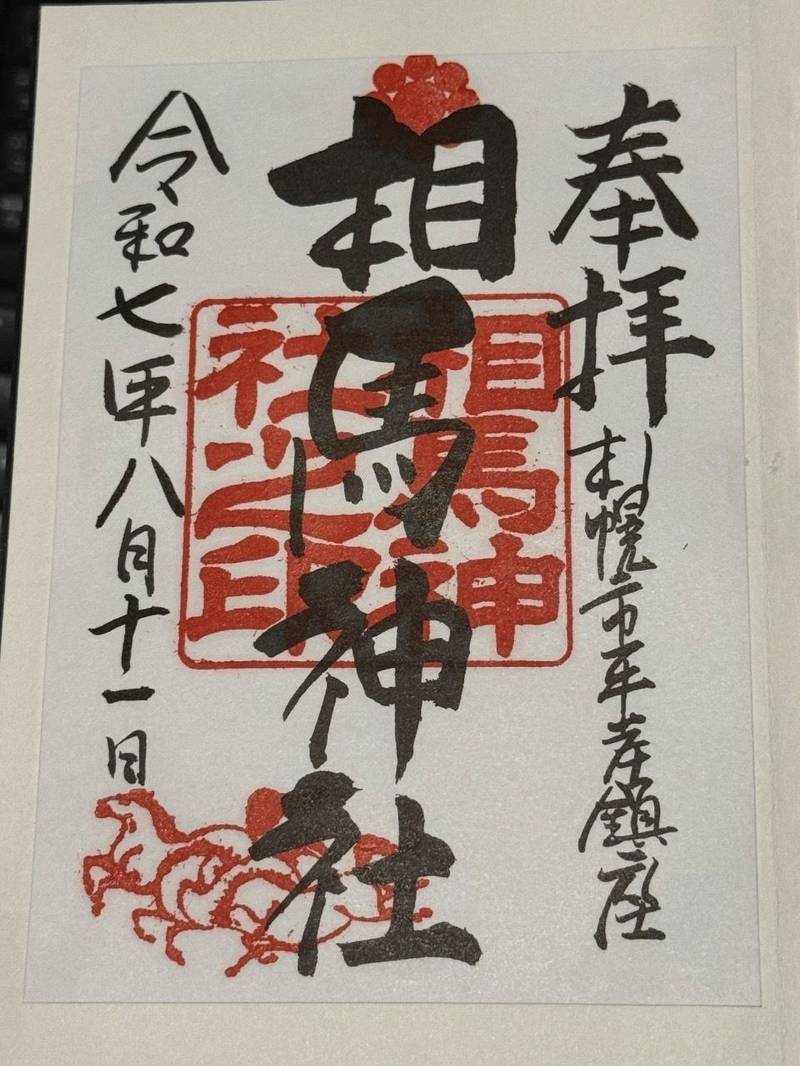 奉拝
札幌市平岸鎮座
相馬神社
相馬神社之印
令和七年八月十一日